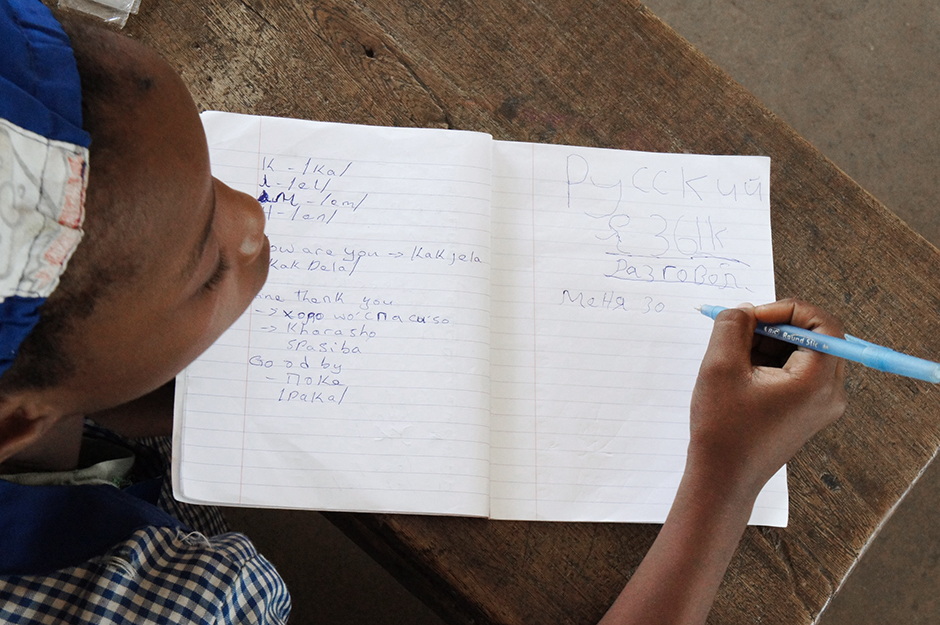 K - /Ka/
- /el/
M - /em/
H - /en/
ow are you → Kak jela
Kak Dela/
ne thank you
→ хоро wo' спа си'so
→ Kharasho
Spasiba
Good by
- Пока
/paka/
Русский
Язык
Разговор.
Меня зо
Round Stic